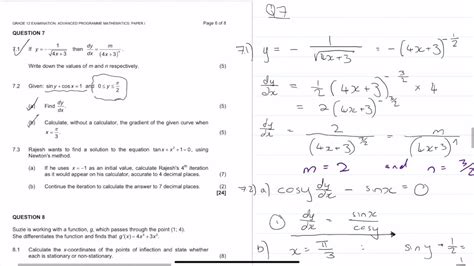 GRADE 12 EXAMINATION: ADVANCED PROGRAMME MATHEMATICS: PAPER I
Page 6 of 8
QUESTION 7
7.1 If y = -1/√(4x+3) then dy/dx = m/(4x+3)ⁿ
Write down the values of m and n respectively. (5)
7.2 Given: sin y + cos x = 1 and 0 ≤ y ≤ π/2
(a) Find dy/dx (5)
(b) Calculate, without a calculator, the gradient of the given curve when
x = π/3 (5)
7.3 Rajesh wants to find a solution to the equation tan x + x² + 1 = 0, using
Newton's method.
(a) If he uses x = -1 as an initial value, calculate Rajesh's 4th iteration
as it would appear on his calculator, accurate to 4 decimal places. (7)
(b) Continue the iteration to calculate the answer to 7 decimal places. (2)
[24]
QUESTION 8
Suzie is working with a function, g, which passes through the point (1; 4).
She differentiates the function and finds that g'(x) = 4x³ + 3x².
8.1 Calculate the x-coordinates of the points of inflection and state whether
each is stationary or non-stationary.
Q7
7.1) y = - 1/√(4x+3) = -(4x+3)^(-1/2)
dy/dx = 1/2 (4x+3)^(-3/2) × 4
= 2(4x+3)^(-3/2)
dy/dx = 2/(4x+3)^(3/2) = m/(4x+3)^n
m = 2 and n = 3/2
7.2) a) cosy dy/dx - sinx = 0
① dy/dx = sinx/cosy
b) x = π/3 : siny = 1/2